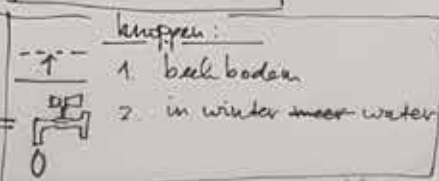 knoppen:
1. beek bodem
2. in winter meer water